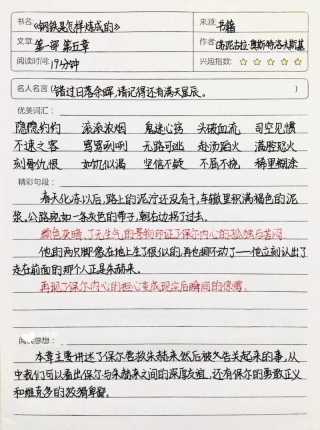 书名：《钢铁是怎样炼成的》
来源：书籍
文章：第一部 第五章
作者：尼古拉·奥斯特洛夫斯基
阅读时间：19分钟
兴趣指数：☆☆☆☆☆
名人名言（错过日落余晖，请记得还有满天星辰。）
优美词汇：
隐隐约约 滚滚浓烟 鬼迷心窍 头破血流 司空见惯
不速之客 骂骂咧咧 无路可逃 赴汤蹈火 满腔怒火
刻骨仇恨 如饥似渴 坚信不疑 不屈不挠 稀里糊涂
精彩句段：
春天化冻以后，路上的泥泞还没有干，车辙里积满褐色的泥
浆。公路宛如一条灰色的带子，朝右边拐了过去。
颜色灰暗，了无生气，由景物印证了保尔内心的孤独与苦闷
他的两只脚像在地上生了根似的，再也挪不动了一他立刻认出了
走在前面的那个人正是朱赫来。
再现了保尔内心的担心变成现实后瞬间的惊愕。
阅读感想：
本章主要讲述了保尔营救朱赫来然后被人告关起来的事，从
中我们可以看出保尔与朱赫来之间的深厚友谊，还有保尔的勇敢正义
和维克多的狡猾卑鄙。